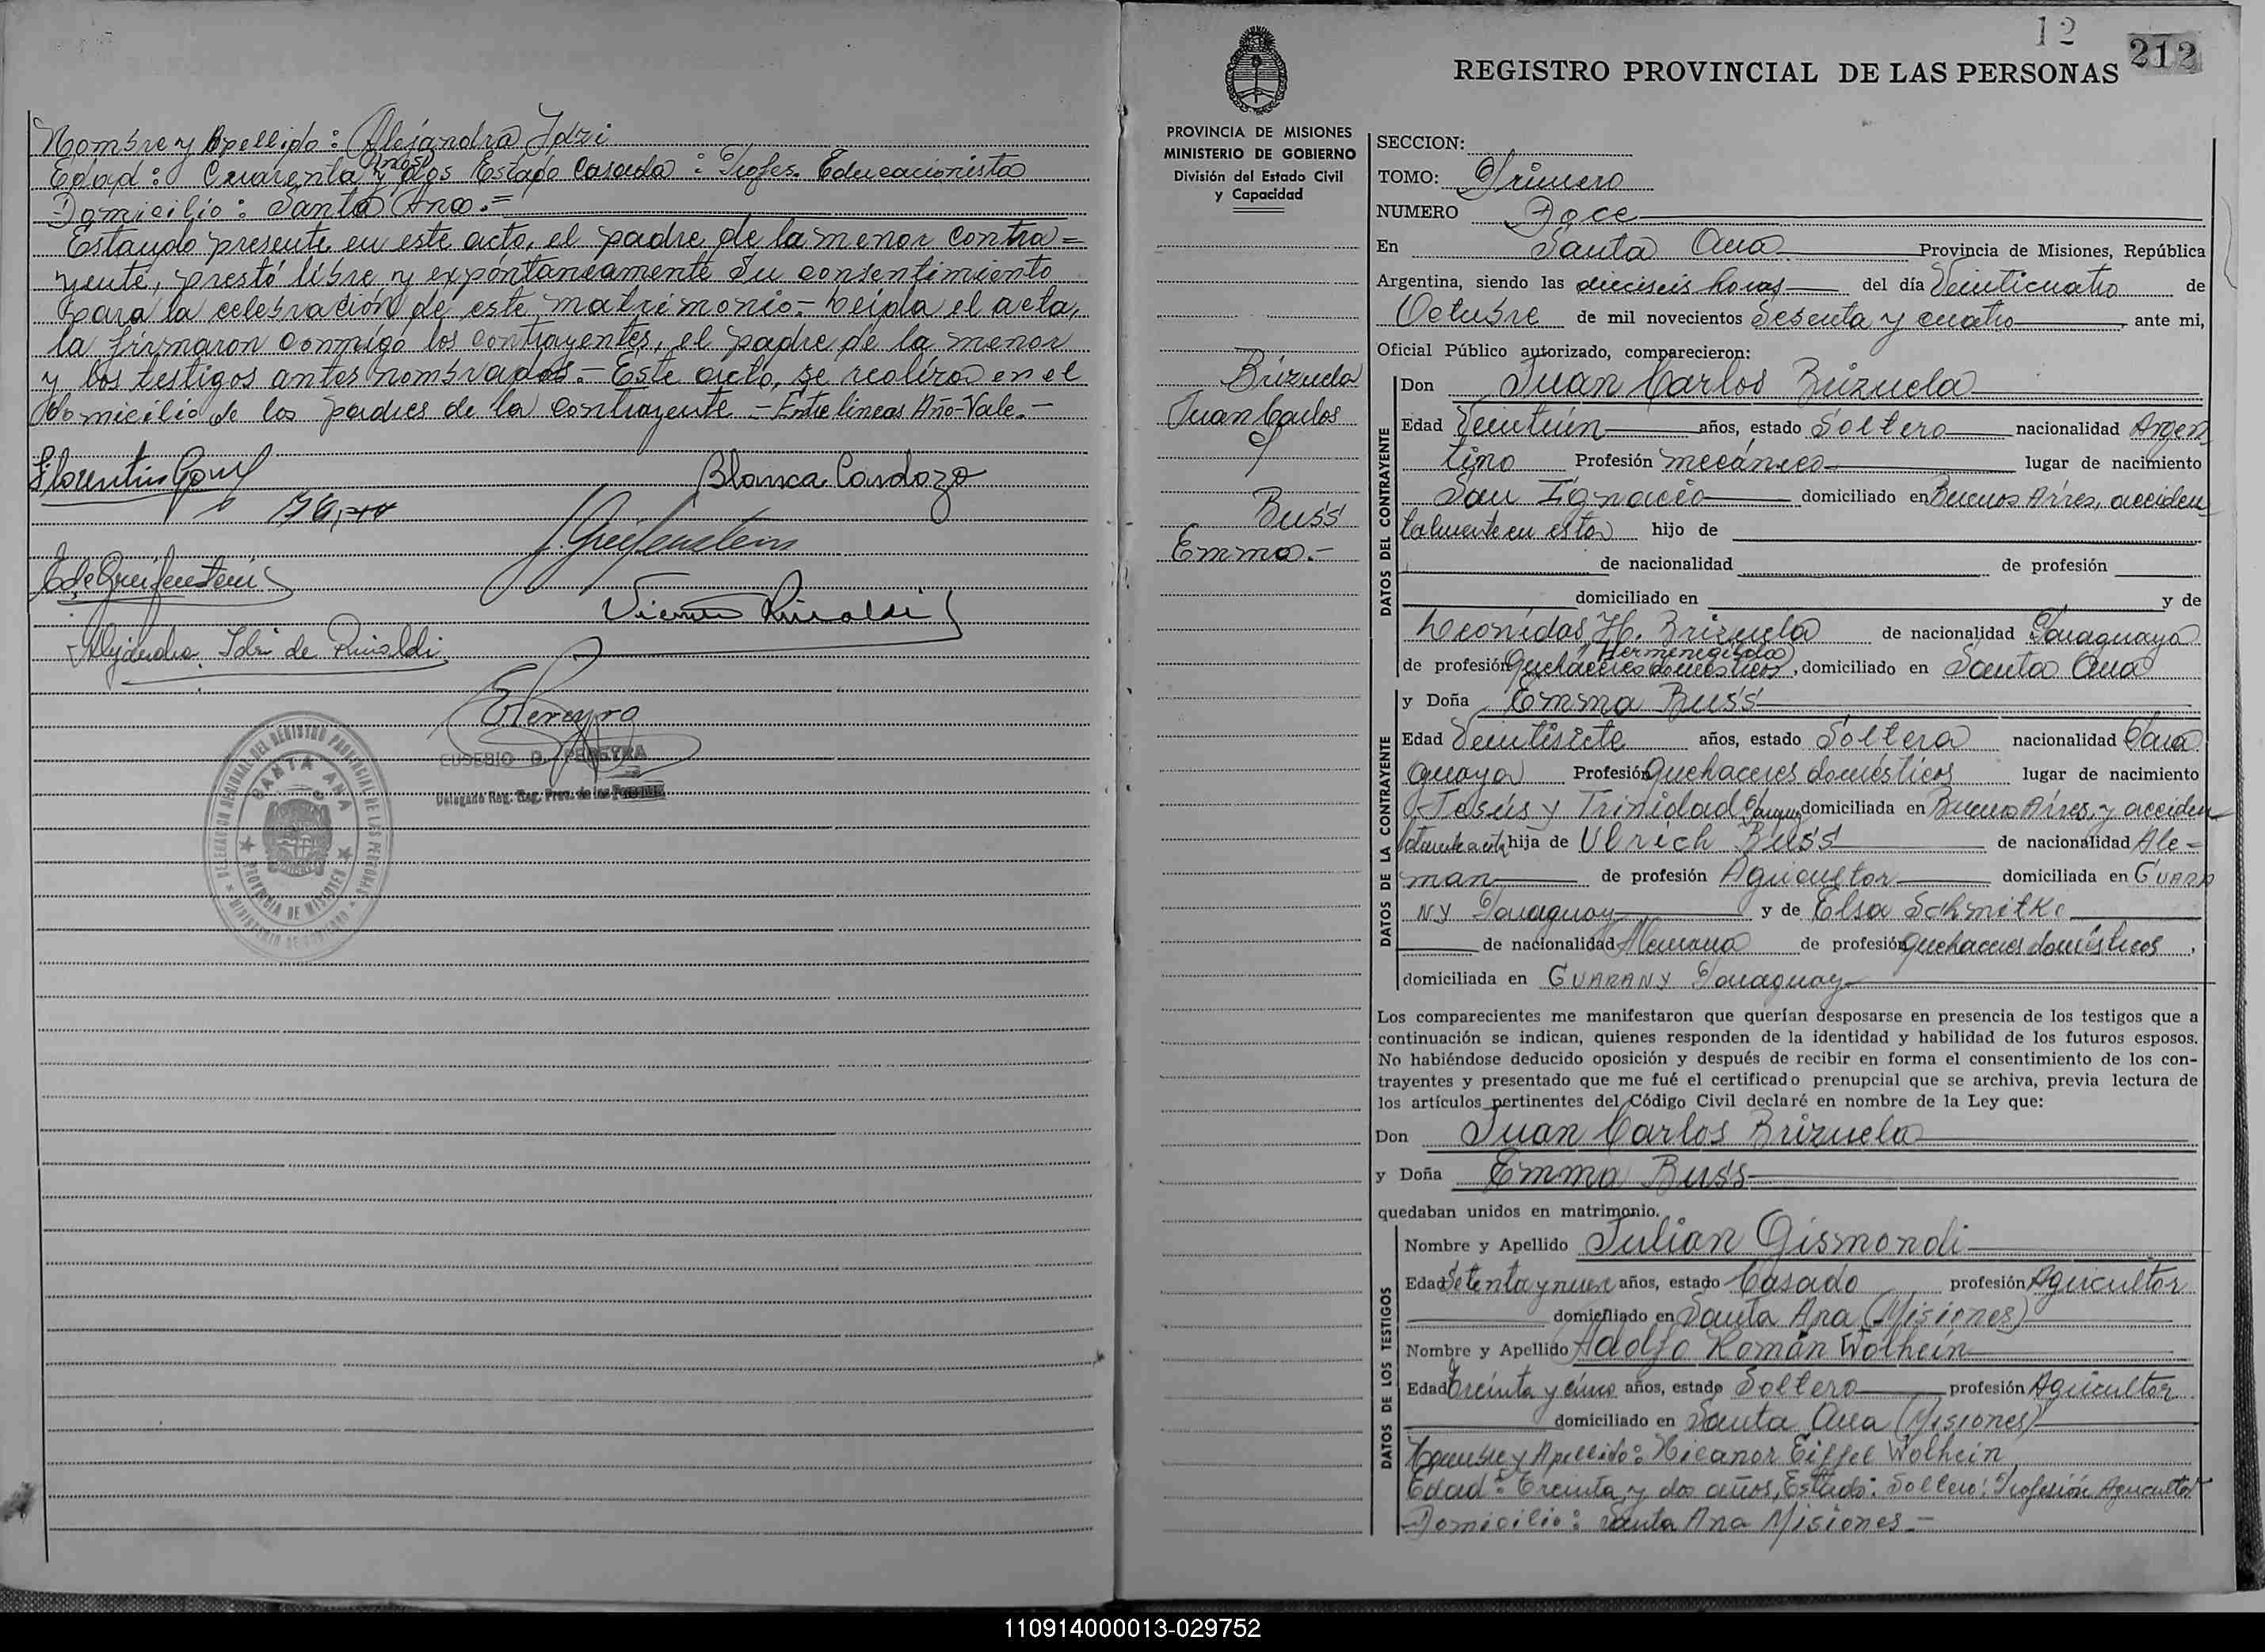 Nombre y Apellido: Alejandra Idzi
Años
Edad: Cuarenta y dos Estado Casada: Profes. Educacionista
Domicilio: Santa Ana.=
Estando presente en este acto, el padre de la menor contra=
yente, prestó libre y expóntaneamente su consentimiento
para la celebración de este matrimonio.- Leida el acta,
la firmaron conmigo los contrayentes, el padre de la menor
y los testigos antes nombrados.- Este acto, se realiza en el
domicilio de los padres de la contrayente - Entre lineas Año-Vale.-
Florentin
Blanca Cardozo
J. Greifenstein
E de Greifenstein
Vicente Rinaldi
Alejandra Idzi de Rinaldi
EPereyra
EUSEBIO D. PEREYRA
Delegado Reg. Reg. Prov. de las Personas
DELEGACION REGIONAL DEL REGISTRO PROVINCIAL DE LAS PERSONAS
SANTA ANA
PROVINCIA DE MISIONES
MINISTERIO DE GOBIERNO
12
212
REGISTRO PROVINCIAL DE LAS PERSONAS
PROVINCIA DE MISIONES
MINISTERIO DE GOBIERNO
División del Estado Civil
y Capacidad
Brizuela
Juan Carlos
y
Buss
Emma.-
SECCION:
TOMO: Primero
NUMERO Doce
En Santa Ana Provincia de Misiones, República
Argentina, siendo las dieciseis horas del día Veinticuatro de
Octubre de mil novecientos Sesenta y cuatro, ante mi,
Oficial Público autorizado, comparecieron:
DATOS DEL CONTRAYENTE
Don Juan Carlos Brizuela
Edad Veintiún años, estado Soltero nacionalidad Argen
tino Profesión mecánico lugar de nacimiento
San Ignacio domiciliado en Buenos Aires, acciden
talmente en esta hijo de
de nacionalidad de profesión
domiciliado en y de
Leonidas H. Brizuela de nacionalidad Paraguaya
Hermenegilda
de profesión Quehaceres domésticos, domiciliado en Santa Ana
DATOS DE LA CONTRAYENTE
y Doña Emma Buss
Edad Veintisiete años, estado Soltera nacionalidad Para
guaya Profesión Quehaceres domésticos lugar de nacimiento
Jesús y Trinidad domiciliada en Buenos Aires, y acciden
hija de Ulrich Buss de nacionalidad Ale=
man de profesión Agricultor domiciliada en GUARA
NY Paraguay y de Elsa Schmitke
de nacionalidad Alemana de profesión Quehaceres domésticos,
domiciliada en GUARANY Paraguay
Los comparecientes me manifestaron que querían desposarse en presencia de los testigos que a
continuación se indican, quienes responden de la identidad y habilidad de los futuros esposos.
No habiéndose deducido oposición y después de recibir en forma el consentimiento de los con-
trayentes y presentado que me fué el certificado prenupcial que se archiva, previa lectura de
los artículos pertinentes del Código Civil declaré en nombre de la Ley que:
Don Juan Carlos Brizuela
y Doña Emma Buss
quedaban unidos en matrimonio.
DATOS DE LOS TESTIGOS
Nombre y Apellido Julian Gismondi
Edad Setenta y nueve años, estado Casado profesión Agricultor
domiciliado en Santa Ana (Misiones)
Nombre y Apellido Adolfo Román Wolhein
Edad Treinta y cinco años, estado Soltero profesión Agricultor
domiciliado en Santa Ana (Misiones)
Nombre y Apellido: Nicanor Eiffel Wolhein
Edad: Treinta y dos años, Estado: Soltero: Profesión Agricultor
Domicilio: Santa Ana Misiones.-
110914000013-029752